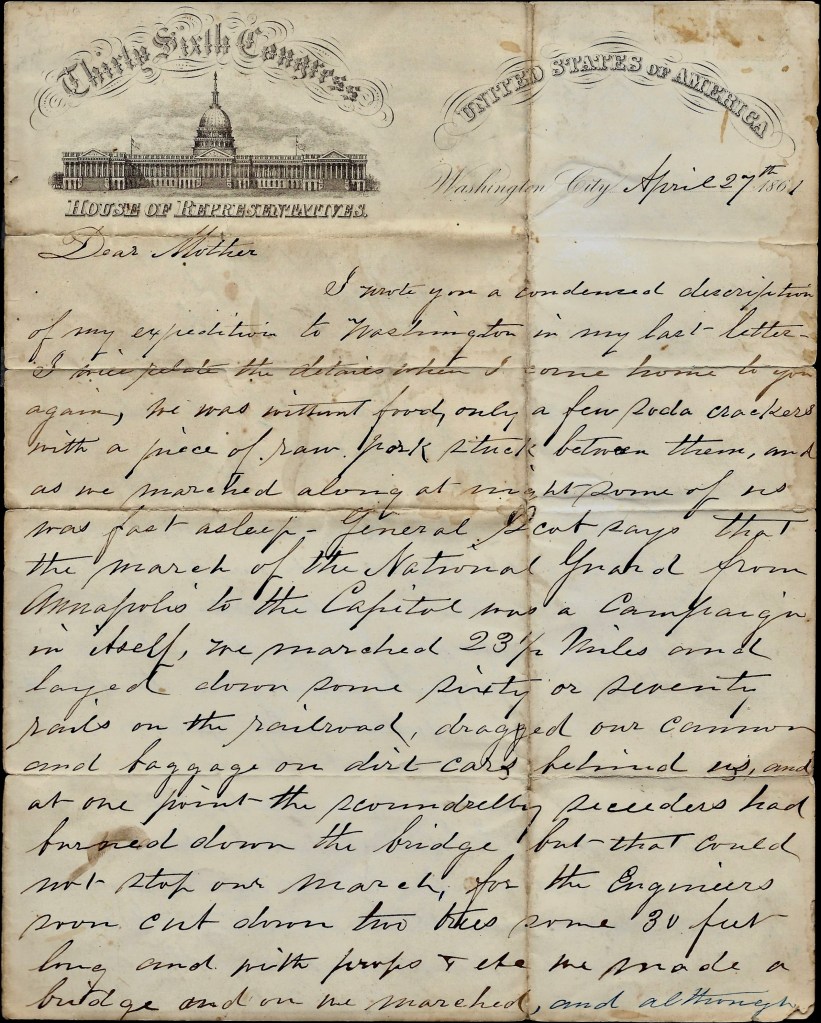 Thirty Sixth Congress
UNITED STATES OF AMERICA
HOUSE OF REPRESENTATIVES.
Washington City, April 27th 1861
Dear Mother
I wrote you a condensed description
of my expedition to Washington in my last letter-
I will relate the details when I come home to you
again, we was without food, only a few soda crackers
with a piece of raw pork stuck between them, and
as we marched along at night some of us
was fast asleep - General Scot says that
the march of the National Guard from
Annapolis to the Capitol was a Campaign
in itself, we marched 23 1/2 Miles and
layed down some sixty or seventy
rails on the railroad, dragged our cannon
and baggage on dirt cars behind us, and
at one point the scoundrelly seceeders had
burned down the bridge but that could
not stop our march, for the Engineers
soon cut down two trees some 30 feet
long and with props & etc we made a
bridge and on we marched, and although